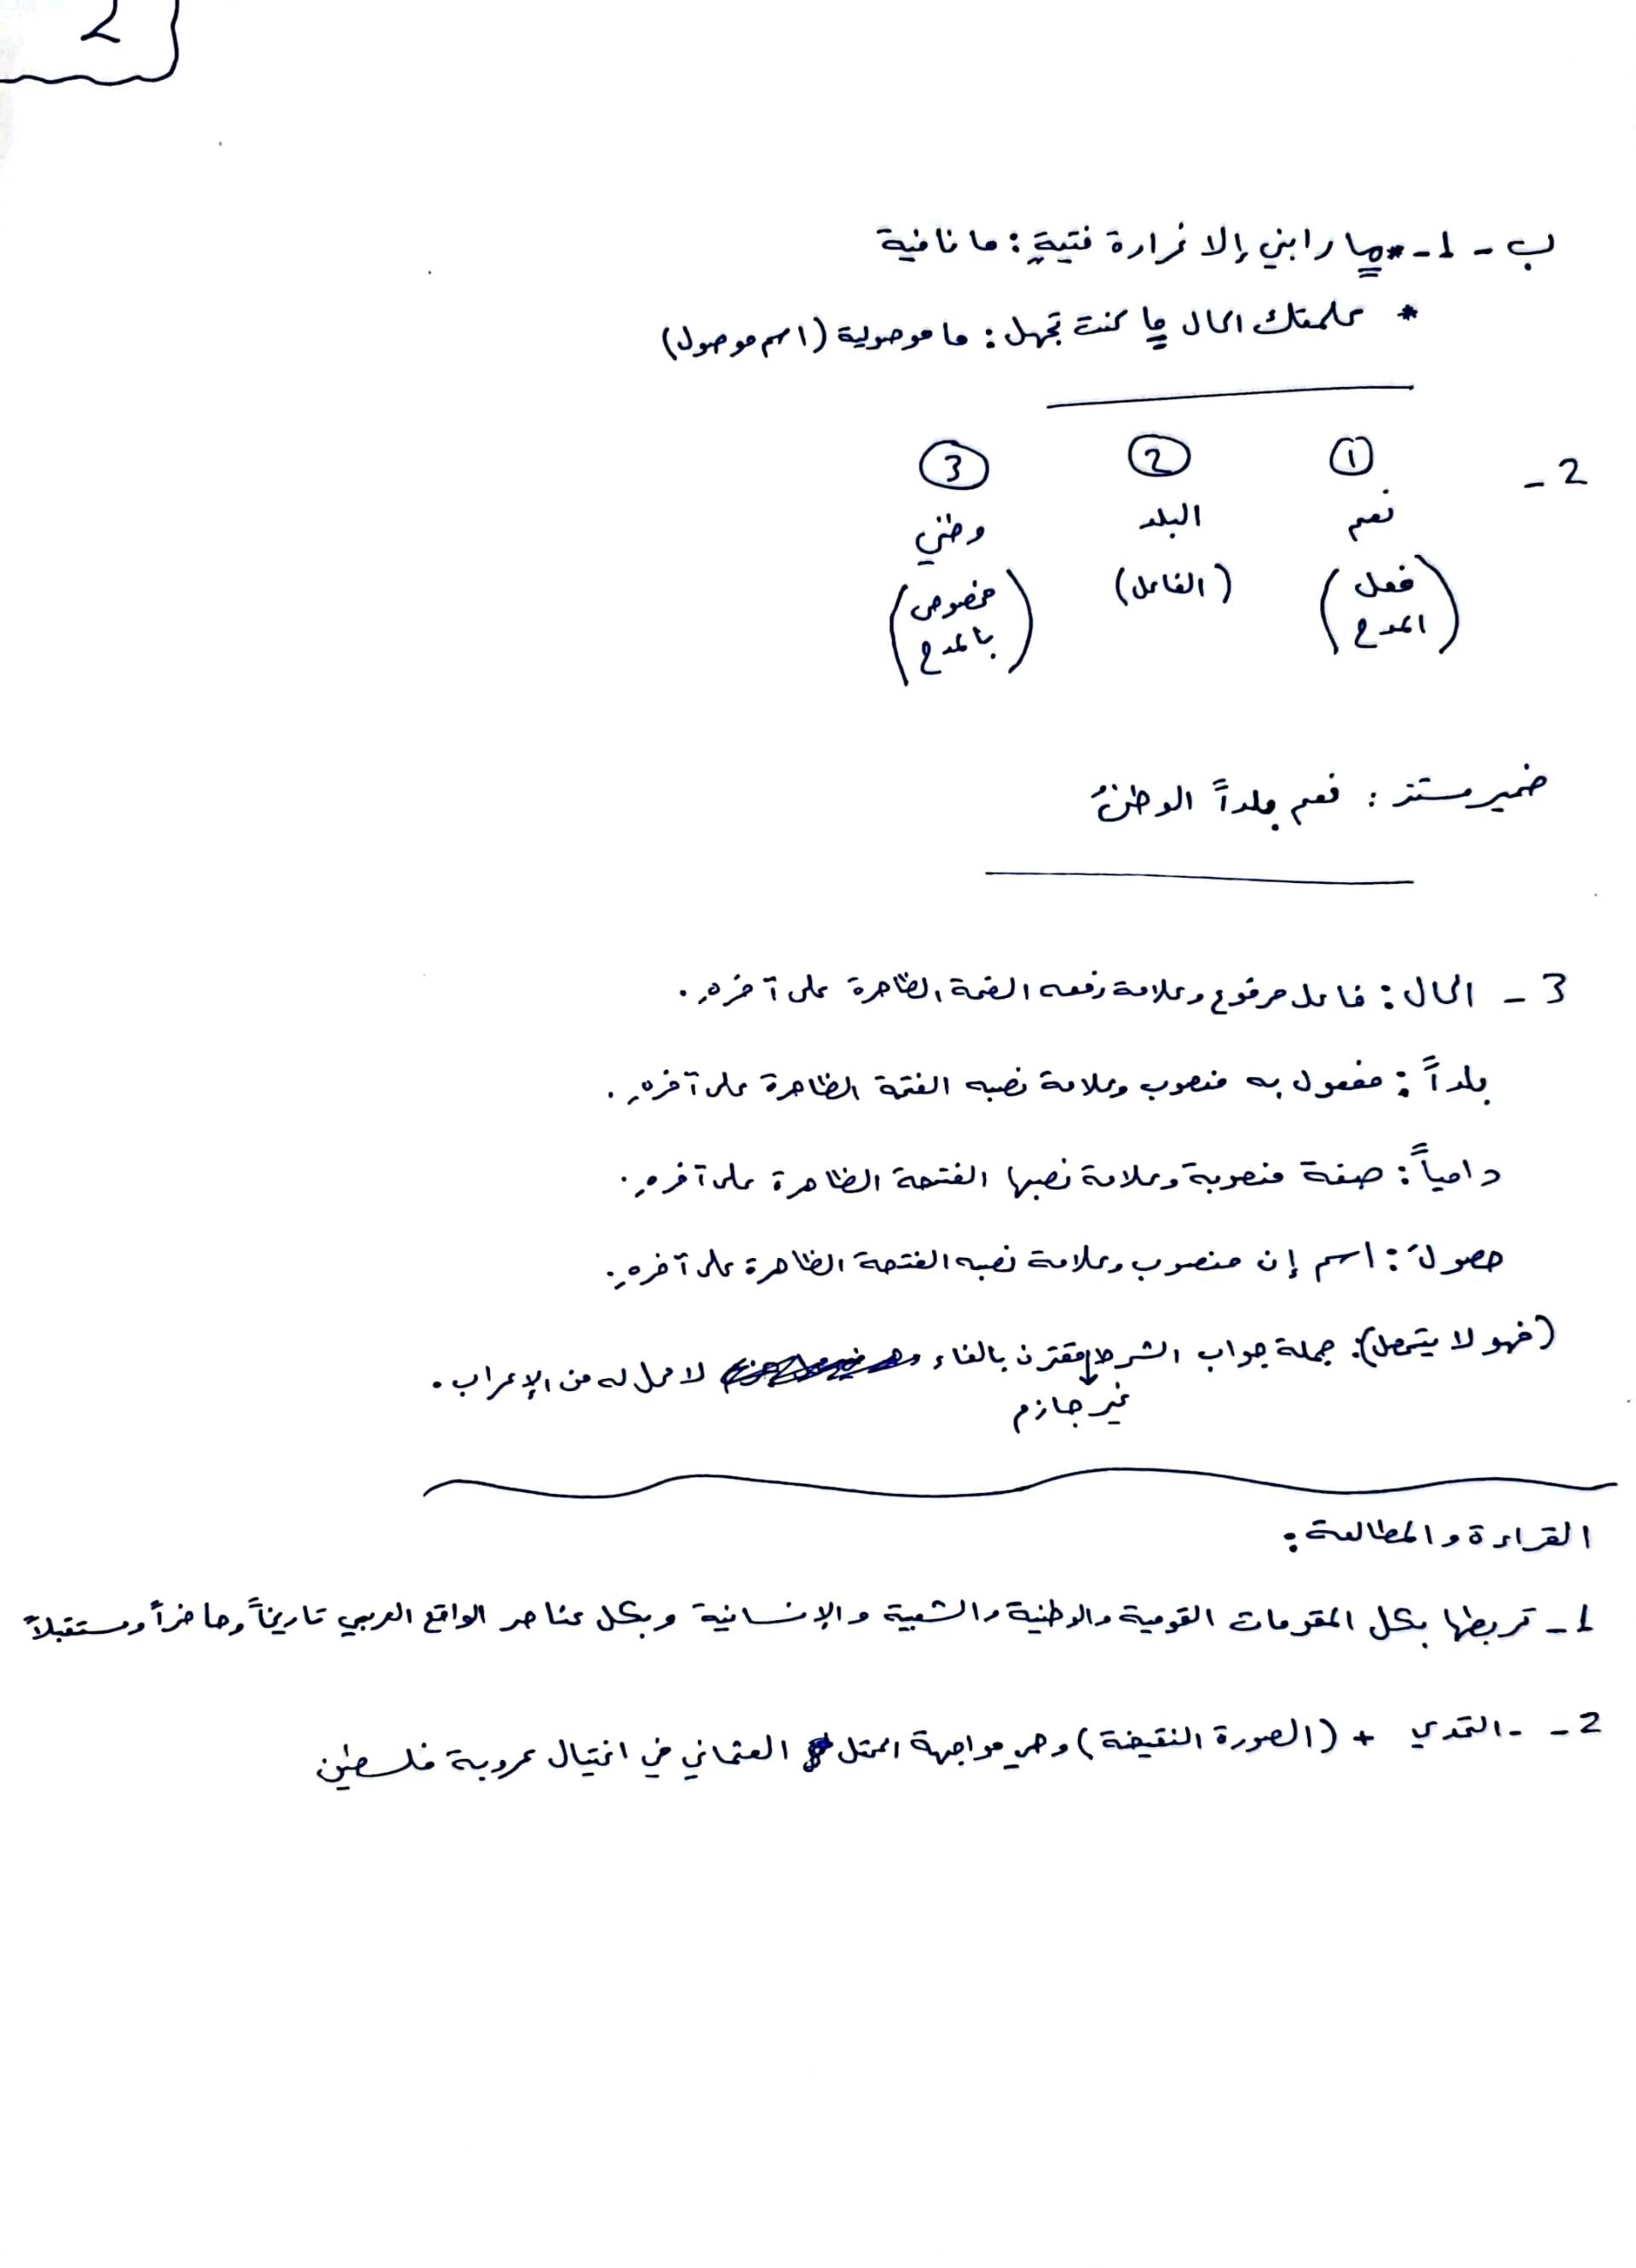 2
ب - 1 - * ما رابني إلا غرارة فتيةٍ : ما نافية
* علمتك الحال ما كنت تجهل : ما موصولية (اسم موصول)
2 -
① ② ③
نعم البلد وطني
(فعل المدح) (الفاعل) (مخصوص بالمدح)
ضمير مستتر : نعم بلداً الوطنُ
3 - الحال : فاعل مرفوع وعلامة رفعه الضمة الظاهرة على آخرهِ .
بلداً : مفعول به منصوب وعلامة نصبه الفتحة الظاهرة على آخرهِ .
دامياً : صفة منصوبة وعلامة نصبها الفتحة الظاهرة على آخرهِ .
حصولَ : اسم إن منصوب وعلامة نصبه الفتحة الظاهرة على آخرهِ .
(فهو لا يتمهل) : جملة جواب الشرط مقترن بالفاء لا محل له من الإعراب .
غير جازم
القراءة والمطالعة :
1 - تربطها بكل المقومات القومية والوطنية والشعبية والإنسانية وبكل عناصر الواقع العربي تاريخاً وحاضراً ومستقبلاً
2 - - التحدي + (الصورة النقيضة) وهي مواجهة المحتل العثماني في اغتيال عروبة فلسطين